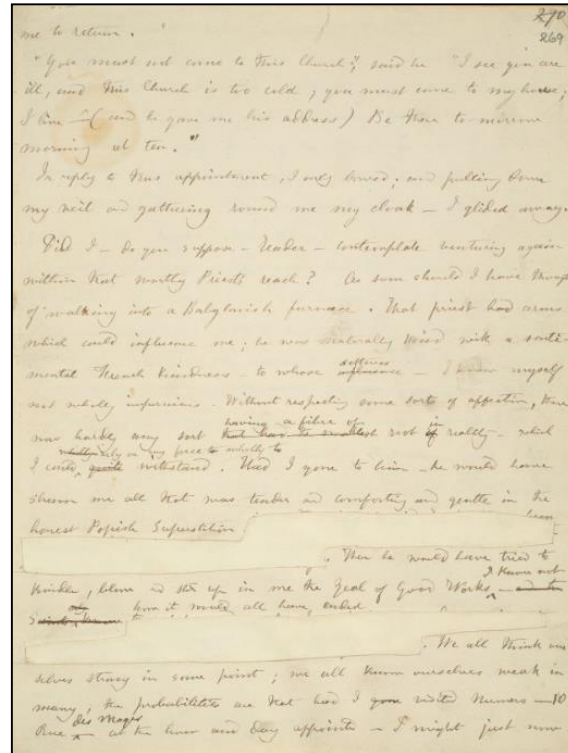 270
269
me to return."
"You must not come to this Church"; said he "I see you are
ill, and this Church is too cold; you must come to my house;
I live —" (and he gave me his address) Be there to-morrow
morning at ten."
In reply to this appointment, I only bowed; and pulling down
my veil and gathering round me my cloak — I glided away.
Did I — do you suppose — Reader — contemplate venturing again
within that worthy Priest's reach? As soon should I have thought
of walking into a Babylonish furnace. That priest had arms
which could influence me; he was naturally kind with a senti-
mental French kindness — to whose softness influence — I knew myself
not wholly impervious. Without respecting some sorts of affection, there
was hardly any sort having a fibre of that had the smallest root in of reality — which
I could quite rely on my force wholly to withstand. Had I gone to him — he would have
shewn me all that was tender and comforting and gentle in the
honest Popish Superstition
. Then he would have tried to
kindle, blow and stir up in me the zeal of Good Works — I know not
how it would all have ended
. We all think our
selves strong in some point; we all know ourselves weak in
many, the probabilities are that had I gone visited Numero — 10
Rue des Mages at the hour and day appointed — I might just now